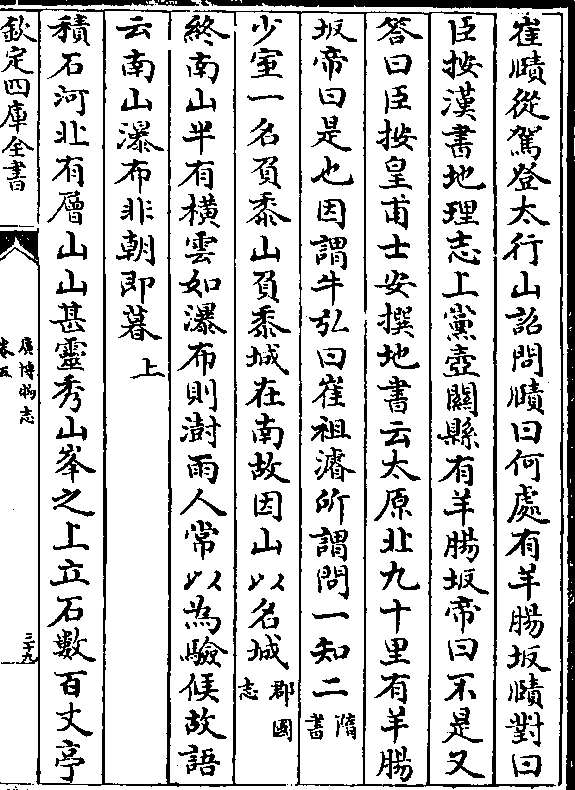 崔賾從駕登太行山詔問賾曰何處有羊腸坂賾對曰
臣按漢書地理志上黨壺關縣有羊腸坂帝曰不是又
答曰臣按皇甫士安撰地書云太原北九十里有羊腸
坂帝曰是也因謂牛弘曰崔祖濬所謂問一知二隋書
少室一名負黍山負黍城在南故因山以名城郡國志
終南山半有橫雲如瀑布則澍雨人常以為驗候故語
云南山瀑布非朝即暮上
積石河北有層山山甚靈秀山峯之上立石數百丈亭
欽定四庫全書
廣博物志
卷五
三十九